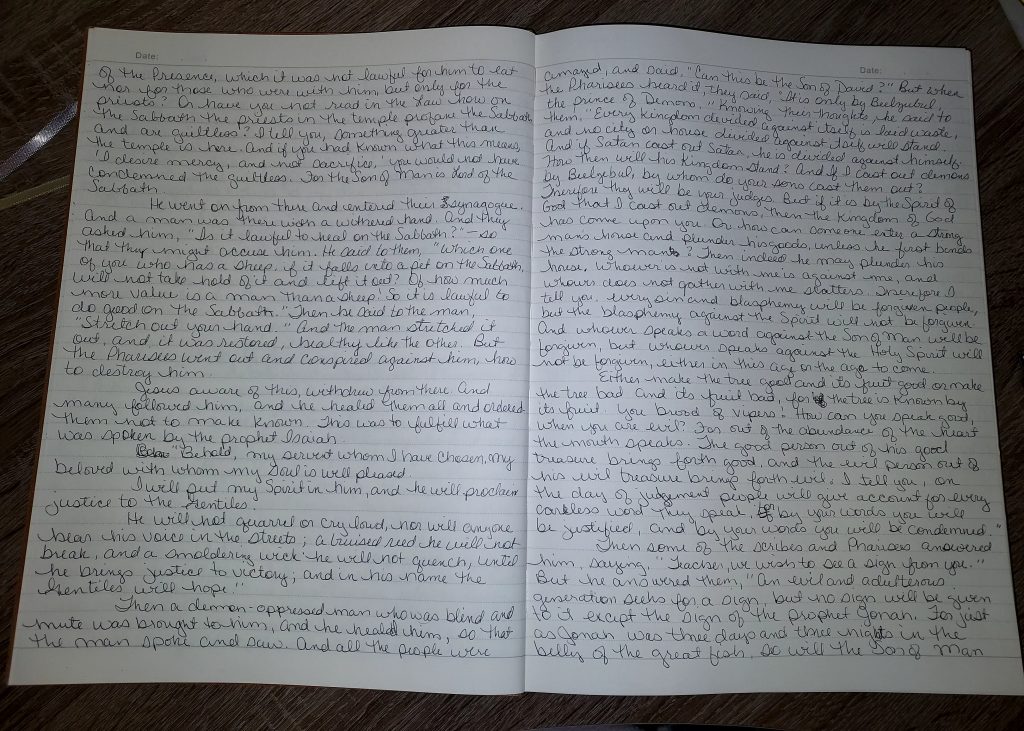 Date:
of the Presence, which it was not lawful for him to eat
nor for those who were with him, but only for the
priests? Or have you not read in the Law how on
the Sabbath the priests in the temple profane the Sabbath
and are guiltless? I tell you, something greater than
the temple is here. And if you had known what this means,
'I desire mercy, and not sacrifice,' you would not have
condemned the guiltless. For the Son of Man is Lord of the
Sabbath.
He went on from there and entered their synagogue.
And a man was there with a withered hand. And they
asked him, "Is it lawful to heal on the Sabbath?" - so
that they might accuse him. He said to them, "Which one
of you who has a sheep, if it falls into a pit on the Sabbath,
will not take hold of it and lift it out? Of how much
more value is a man than a sheep! So it is lawful to
do good on the Sabbath." Then he said to the man,
"Stretch out your hand." And the man stretched it
out, and it was restored, healthy like the other. But
the Pharisees went out and conspired against him, how
to destroy him.
Jesus aware of this, withdrew from there. And
many followed him, and he healed them all and ordered
them not to make known. This was to fulfill what
was spoken by the prophet Isaiah.
"Behold, my servant whom I have chosen, my
beloved with whom my soul is well pleased.
I will put my Spirit in him, and he will proclaim
justice to the Gentiles.
He will not quarrel or cry loud, nor will anyone
hear his voice in the streets; a bruised reed he will not
break, and a smoldering wick he will not quench, until
he brings justice to victory; and in his name the
Gentiles will hope."
Then a demon-oppressed man who was blind and
mute was brought to him, and he healed him, so that
the man spoke and saw. And all the people were
Date:
amazed, and said, "Can this be the Son of David?" But when
the Pharisees heard it, they said, "It is only by Beelzebul,
the prince of Demons." Knowing their thoughts, he said to
them. "Every kingdom divided against itself is laid waste,
and no city or house divided against itself will stand.
And if Satan cast out Satan, he is divided against himself.
How then will his Kingdom stand? And if I cast out demons
by Beelzebul, by whom do your sons cast them out?
Therefore they will be your judges. But if it is by the Spirit of
God that I cast out demons, then the Kingdom of God
has come upon you. Or how can someone enter a strong
man's house and plunder his goods, unless he first binds
the strong man? Then indeed he may plunder his
house. Whoever is not with me is against me, and
whoever does not gather with me scatters. Therefore I
tell you, every sin and blasphemy will be forgiven people,
but the blasphemy against the Spirit will not be forgiven.
And whoever speaks a word against the Son of Man will be
forgiven, but whoever speaks against the Holy Spirit will
not be forgiven, either in this age or the age to come.
Either make the tree good and its fruit good or make
the tree bad and its fruit bad, for the tree is known by
its fruit. You brood of vipers! How can you speak good,
when you are evil? For out of the abundance of the heart
the mouth speaks. The good person out of his good
treasure brings forth good, and the evil person out of
his evil treasure brings forth evil. I tell you, on
the day of judgement people will give account for every
careless word they speak, for by your words you will
be justified, and by your words you will be condemned."
Then some of the scribes and Pharisees answered
him, saying, "Teacher, we wish to see a sign from you."
But he answered them, "An evil and adulterous
generation seeks for a sign, but no sign will be given
to it except the sign of the prophet Jonah. For just
as Jonah was three days and three nights in the
belly of the great fish, so will the Son of Man